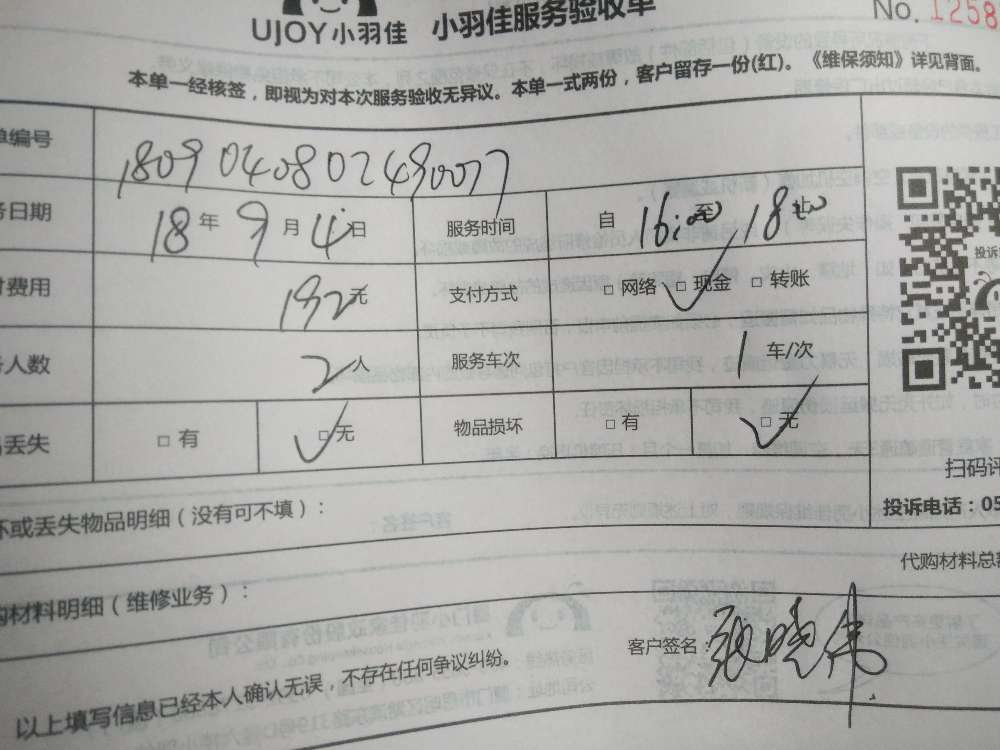 UJOY小羽佳 小羽佳服务验收单 No. 1258
本单一经核签,即视为对本次服务验收无异议。本单一式两份,客户留存一份(红)。《维保须知》详见背面。
单编号 1809040802490077
务日期 18年9月4日 服务时间 自16:00至18:00止
付费用 192元 支付方式 □网络 ☑现金 □转账
务人数 2人 服务车次 1车/次
品丢失 □有 ☑无 物品损坏 □有 ☑无
投诉
扫码评
坏或丢失物品明细(没有可不填): 投诉电话:05
代购材料总额
购材料明细(维修业务):
客户签名:
以上填写信息已经本人确认无误,不存在任何争议纠纷。